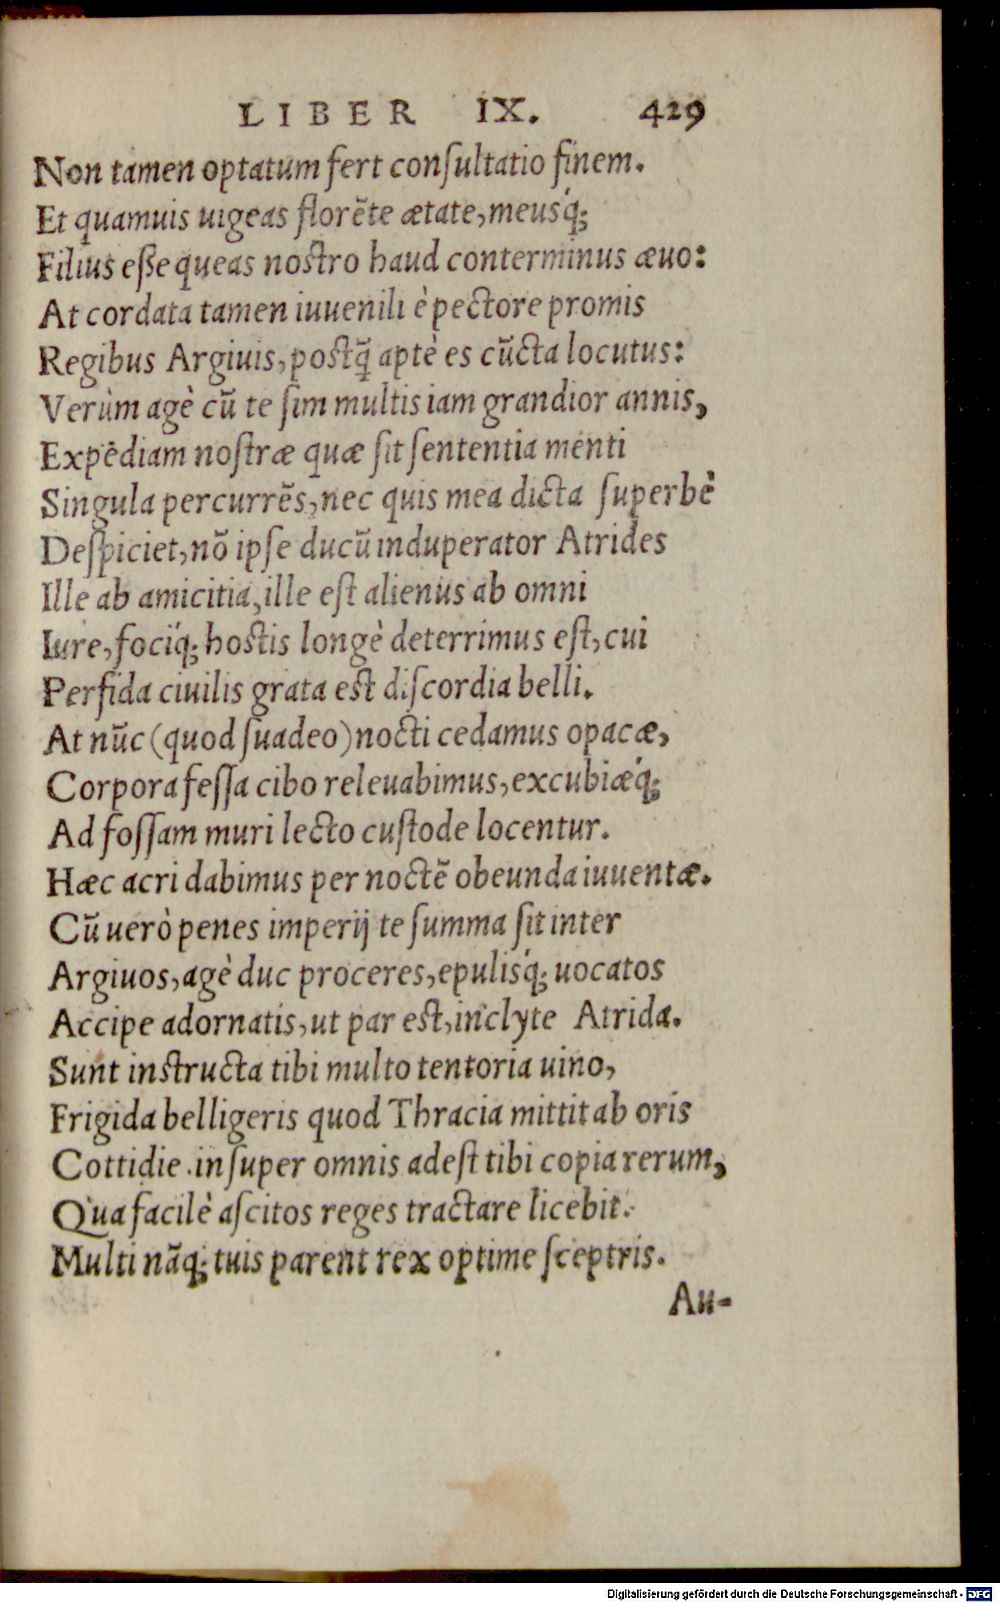 LIBER IX. 429
Non tamen optatum fert conſultatio finem.
Et quamuis uigeas florẽte ætate, meusq́;
Filius eſſe queas noſtro haud conterminus æuo:
At cordata tamen iuuenili è pectore promis
Regibus Argiuis, poſtq̃ aptè es cũcta locutus:
Verùm agè cũ te ſim multis iam grandior annis,
Expẽdiam noſtræ quæ ſit ſententia menti
Singula percurrẽs, nec quis mea dicta ſuperbè
Deſpiciet, nõ ipſe ducũ induperator Atrides
Ille ab amicitia, ille eſt alienus ab omni
Iure, fociq́; hoſtis longè deterrimus eſt, cui
Perfida ciuilis grata eſt diſcordia belli.
At nũc (quod ſuadeo) nocti cedamus opacæ,
Corpora feſſa cibo releuabimus, excubiæq́;
Ad foſſam muri lecto cuſtode locentur.
Hæc acri dabimus per noctẽ obeunda iuuentæ.
Cũ uerò penes imperij te ſumma ſit inter
Argiuos, agè duc proceres, epulisq́; uocatos
Accipe adornatis, ut par eſt, inclyte Atrida.
Sunt inſtructa tibi multo tentoria uino,
Frigida belligeris quod Thracia mittit ab oris
Cottidie. inſuper omnis adeſt tibi copia rerum,
Qua facilè aſcitos reges tractare licebit.
Multi nãq; tuis parent rex optime ſceptris.
Au-
Digitalisierung gefördert durch die Deutsche Forschungsgemeinschaft - DFG